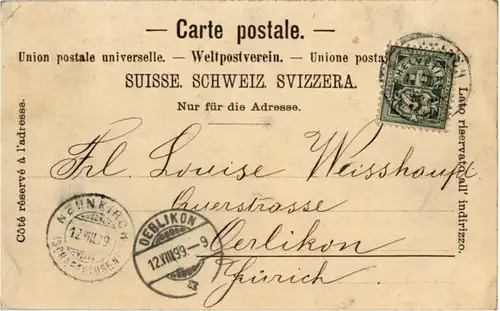 — Carte postale. —
Union postale universelle. — Weltpostverein. — Unione posta
SUISSE. SCHWEIZ. SVIZZERA.
Nur für die Adresse.
HELVETIA
Côté réservé à l'adresse.
Lato riservato all' indirizzo.
Frl. Louise Weisshaupt
Querstrasse
Oerlikon
Zürich
NEUNKIRCH
12.VIII.99
(SCHAFFHAUSEN)
OERLIKON
12.VIII.99–9